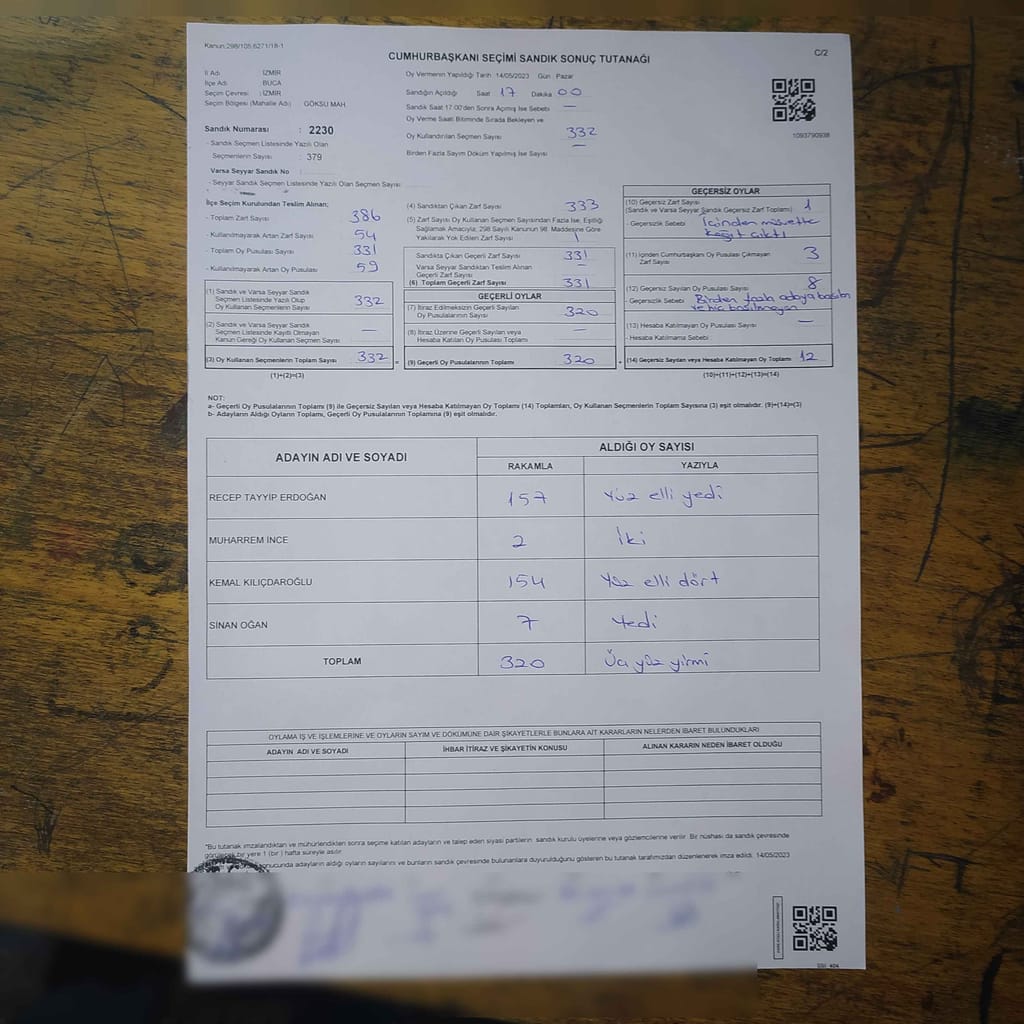 Kanun:298/105,6271/18-1
C/2
CUMHURBAŞKANI SEÇİMİ SANDIK SONUÇ TUTANAĞI
İl Adı : İZMİR
İlçe Adı : BUCA
Seçim Çevresi : İZMİR
Seçim Bölgesi (Mahalle Adı) GÖKSU MAH.
Sandık Numarası : 2230
- Sandık Seçmen Listesinde Yazılı Olan
Seçmenlerin Sayısı : 379
Varsa Seyyar Sandık No :
- Seyyar Sandık Seçmen Listesinde Yazılı Olan Seçmen Sayısı:
Oy Vermenin Yapıldığı Tarih 14/05/2023 Gün Pazar
Sandığın Açıldığı Saat 17 Dakika 00
Sandık Saat 17:00'den Sonra Açımış İse Sebebi —
Oy Verme Saati Bitiminde Sırada Bekleyen ve
Oy Kullandırılan Seçmen Sayısı 332
Birden Fazla Sayım Döküm Yapılmış İse Sayısı —
1093790938
İlçe Seçim Kurulundan Teslim Alınan;
- Toplam Zarf Sayısı 386
- Kullanılmayarak Artan Zarf Sayısı 54
- Toplam Oy Pusulası Sayısı 331
- Kullanılmayarak Artan Oy Pusulası 59
(1) Sandık ve Varsa Seyyar Sandık
Seçmen Listesinde Yazılı Olup
Oy Kullanan Seçmenlerin Sayısı 332
(2) Sandık ve Varsa Seyyar Sandık
Seçmen Listesinde Kayıtlı Olmayan
Kanun Gereği Oy Kullanan Seçmen Sayısı —
(3) Oy Kullanan Seçmenlerin Toplam Sayısı 332 =
(1)+(2)=(3)
(4) Sandıktan Çıkan Zarf Sayısı 333
(5) Zarf Sayısı Oy Kullanan Seçmen Sayısından Fazla İse, Eşitliği
Sağlamak Amacıyla; 298 Sayılı Kanunun 98. Maddesine Göre
Yakılarak Yok Edilen Zarf Sayısı 1
Sandıkta Çıkan Geçerli Zarf Sayısı 331
Varsa Seyyar Sandıktan Teslim Alınan
Geçerli Zarf Sayısı —
(6) Toplam Geçerli Zarf Sayısı 331
GEÇERLİ OYLAR
(7) İtiraz Edilmeksizin Geçerli Sayılan
Oy Pusulalarının Sayısı 320
(8) İtiraz Üzerine Geçerli Sayılan veya
Hesaba Katılan Oy Pusulası Toplamı —
(9) Geçerli Oy Pusulalarının Toplamı 320 +
GEÇERSİZ OYLAR
(10) Geçersiz Zarf Sayısı
(Sandık ve Varsa Seyyar Sandık Geçersiz Zarf Toplamı) 1
- Geçersizlik Sebebi İçinden müsvette
kağıt çıktı
(11) İçinden Cumhurbaşkanı Oy Pusulası Çıkmayan
Zarf Sayısı 3
(12) Geçersiz Sayılan Oy Pusulası Sayısı 8
- Geçersizlik Sebebi Birden fazla adaya basılan
ve hiç basılmayan
(13) Hesaba Katılmayan Oy Pusulası Sayısı —
- Hesaba Katılmama Sebebi
(14) Geçersiz Sayılan veya Hesaba Katılmayan Oy Toplamı 12
(10)+(11)+(12)+(13)=(14)
NOT:
a- Geçerli Oy Pusulalarının Toplamı (9) ile Geçersiz Sayılan veya Hesaba Katılmayan Oy Toplamı (14) Toplamları, Oy Kullanan Seçmenlerin Toplam Sayısına (3) eşit olmalıdır. (9)+(14)=(3)
b- Adayların Aldığı Oyların Toplamı, Geçerli Oy Pusulalarının Toplamına (9) eşit olmalıdır.
ADAYIN ADI VE SOYADI ALDIĞI OY SAYISI
RAKAMLA YAZIYLA
RECEP TAYYIP ERDOĞAN 157 Yüz elli yedi
MUHARREM İNCE 2 İki
KEMAL KILIÇDAROĞLU 154 Yüz elli dört
SİNAN OĞAN 7 Yedi
TOPLAM 320 Üç yüz yirmi
OYLAMA İŞ VE İŞLEMLERİNE VE OYLARIN SAYIM VE DÖKÜMÜNE DAİR ŞİKAYETLERLE BUNLARA AİT KARARLARIN NELERDEN İBARET BULUNDUKLARI
ADAYIN ADI VE SOYADI İHBAR İTİRAZ VE ŞİKAYETİN KONUSU ALINAN KARARIN NEDEN İBARET OLDUĞU
*Bu tutanak imzalandıktan ve mühürlendikten sonra seçime katılan adayların ve talep eden siyasi partilerin sandık kurulu üyelerine veya gözlemcilerine verilir. Bir nüshası da sandık çevresinde
görülecek bir yere 1 (bir) hafta süreyle asılır.
sonucunda adayların aldığı oyların sayılarını ve bunların sandık çevresinde bulunanlara duyurulduğunu gösteren bu tutanak tarafımızdan düzenlenerek imza edildi. 14/05/2023